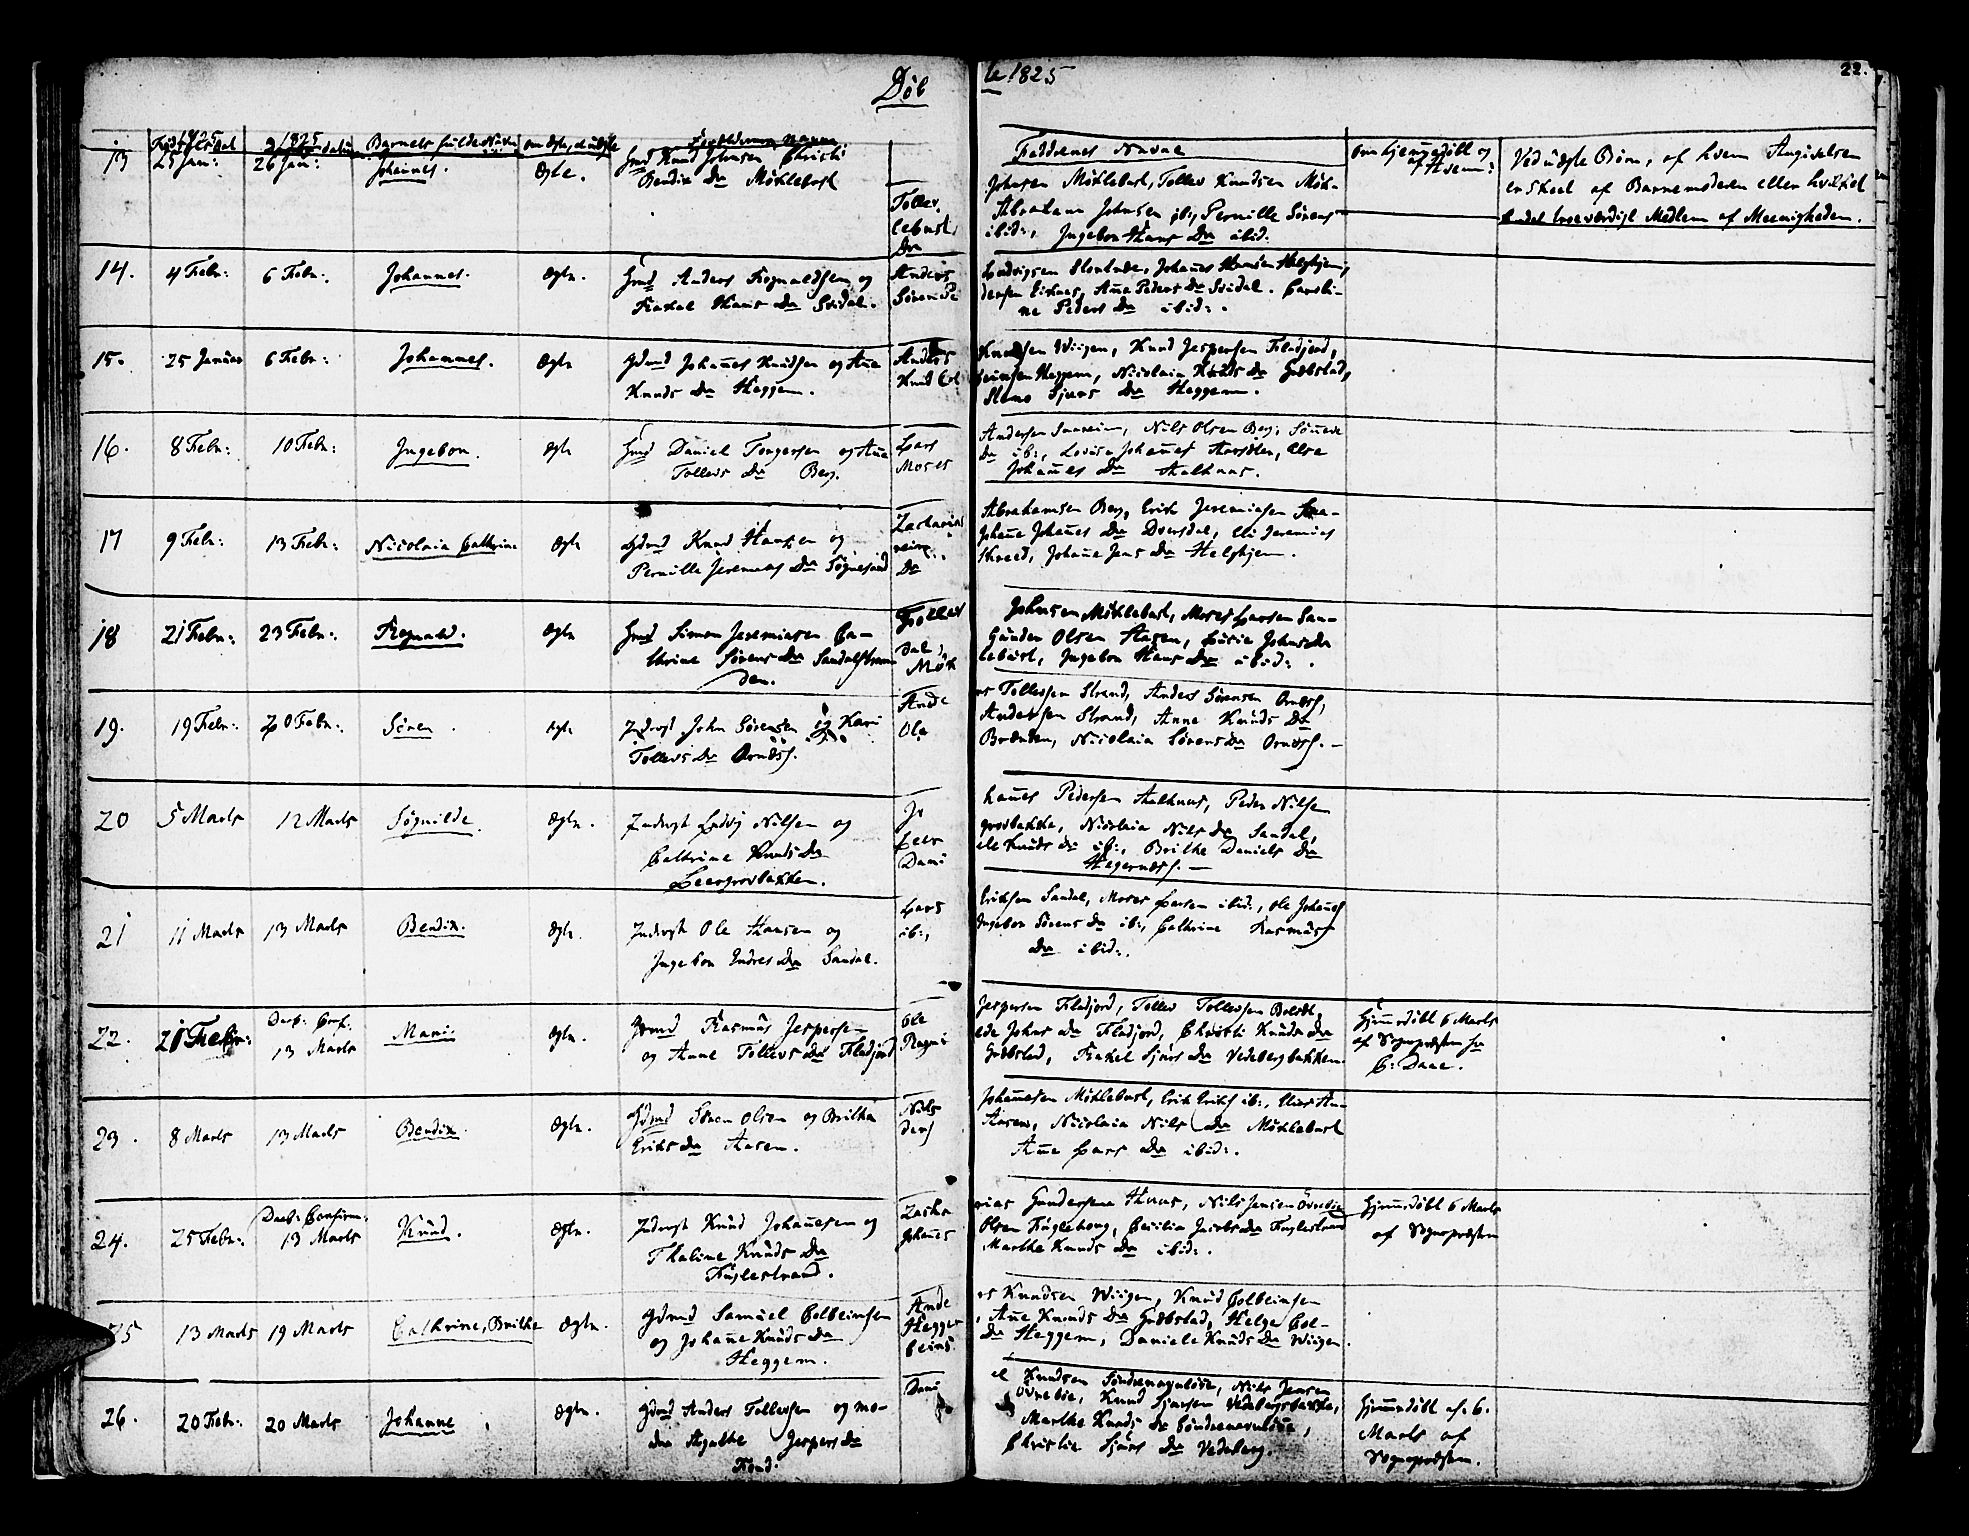 Døb
te 1825
22.
1825
1825
Barnets fulde Navn
om ægte, el uægte
Forældrenes Navne
Faddrenes Navne
om hjemmedøbt og
af Hvem:
Ved uægte Børn, af hvem Angivelsen
er skeet af Barnemoderen eller hvilket
andet troeværdigt Medlem af Meenigheden.
13
25 Jan:
26 Jan:
Johannes.
Ægte.
Gmd Knud Johnsen Christi
Bendix Dr Möklebust
Tollev
lebust,
Dr
Johnsen Möklebust, Tollev Knudsen Mök-
Abraham Johnsen ib; Pernille Sörens
ibid:, Jngebor Hans Dr ibid:
14.
4 Febr:
6 Febr:
Johannes.
Ægte.
Gmd Anders Rognaldsen og
Rakel Hans Dr Svidal.
Anders
Sören Pe
Ludvigsen Johanes Hansen Helghjem,
dersen Ane Peders Dr Svidal. Caroli-
ne Peders Dr ibid:.
15.
25 Januar
6 Febr:
Johannes.
Ægte
Gdmd Johanes Knudsen og Ane
Knuds Dr Heggem.
Anders
Knud Col
Knudsen Wiigen, Knud Jespersen Fladjord,
beinsen Heggem, Nicolaia Knuds Dr Grebstad,
Sjurs Dr Heggem.
16.
8 Febr:
10 Febr:
Jngebor.
Ægte
Gmd Daniel Torgersen og Ane
Tollevs Dr Berg.
Lars
Moses
Andersen Nils Olsen Berg;
Dr ib:, Lovisa Johanes Else
Johanes Dr Aalhuus.
17
9 Febr:
13 Febr:
Nicolaia Cathrine
Ægte
Gdmd Knud Hansen og
Pernille Jeremias Dr Sognesand
Zacharias
Dr
Abrahamsen Berg, Erik Jeremiasen
Johane Johanes Dr Dvergsdal, Eli Jeremias
Johane Jens Dr Helghjem.
18
21 Febr:
23 Febr:
Rognald.
Ægte
Gmd Simon Jeremiasen Ca-
thrine Sörens Dr Sandalstran
den.
Tollev
dal,
Mök
Johnsen Möklebust, Moses Larsen San-
Gunder Olsen Aasen, Lucia Johns Dr
lebust, Jngebor Hans Dr ibid:.
19.
19 Febr:
20 Febr:
Sören.
Ægte
Jnderst John Sörensen og Kari
Tollevs Dr Ornæss.
Ande
Ole
rs Tollevsen Strand, Anders Sörensen Ornæss,
Andersen Strand, Anne Knuds Dr
Nicolaia Sörens Dr Ornæss.
20
5 Marts
12 Marts
Sögnilde.
Ægte.
Jnderst Ludvig Nilsen og
Cathrine Knuds Dr
Leergrovbakken.
Jo
Leer
Dani
hanes Pedersen Aalhuus, Peder Nilsen
grovbakke, Nicolaia Nils Dr Sandal,
ele Knuds Dr ib:, Brithe Daniels Dr
Hegernæss.
21
11 Marts
13 Marts
Bendix.
Ægte.
Jnderst Ole Hansen og
Jngebor Endres Dr Sandal.
Lars
ib:,
Eriksen Sandal, Moses Larsen ibid:, Ole Johanes
Jngebor Sörens Dr ib:, Cathrine Rasmus
Dr ibid:.
22.
21 Febr:
Daab: Conf:
13 Marts
Mari
Ægte.
Gdmd Rasmus Jespersen
og Anne Tollevs Dr Fladjord
Ole
Ragni
Jespersen Fladjord, Tollev Tollevsen
lde Johns Dr Fladjord, Christi Knuds Dr
Grebstad, Rakel Sjurs Dr Vedebergbakken.
Hjemmedöbt 6 Marts
af Sognepræsten Hr
C: Daae.
23.
8 Marts
13 Marts
Bendix.
Ægte.
Gdmd Sören Olsen og Brithe
Eriks Dr Aasen.
Nils
ders
Johanesen Möklebust, Erik Eriks ib:, Elias An-
Aasen, Nicolaia Nils Dr Möklebust
Ane Lars Dr ibid:.
24.
25 Febr:
Daab: Confirm:
13 Marts
Knud.
Ægte.
Jnderst Knud Johanesen og
Thaline Knuds Dr
Fuglestrand.
Zacha
Johanes
rias Gundersen Huus, Nils Jensen Övrebie
Olsen Fuglehoug, Cecilia Jacobs Dr Fuglestrand
Marthe Knuds Dr ibid:.
Hjemmedöbt 6 Marts
af Sognepræsten
25
13 Marts
19 Marts
Cathrine, Brithe
Ægte.
Gdmd Samuel Colbeinsen
og Johane Knuds Dr
Heggem.
Ande
Hegger
beins
rs Knudsen Wiigen, Knud Colbeinsen
, Ane Knuds Dr Grebstad, Helge Col-
Dr Heggem, Daniele Knuds Dr Wiigen.
26.
20 Febr:
20 Marts
Johanne
Ægte.
Gdmd Anders Tollevsen og Mo-
der Agathe Jespers Dr
Dani
el Knudsen Nils Jensen
Övrebie, Knud Sjursen Vedebergbakke,
Marthe Knuds Dr
Christie Sjurs Dr Vedeberg.
Hjemmedöbt af. 6.
Marts af
Sognepræsten.